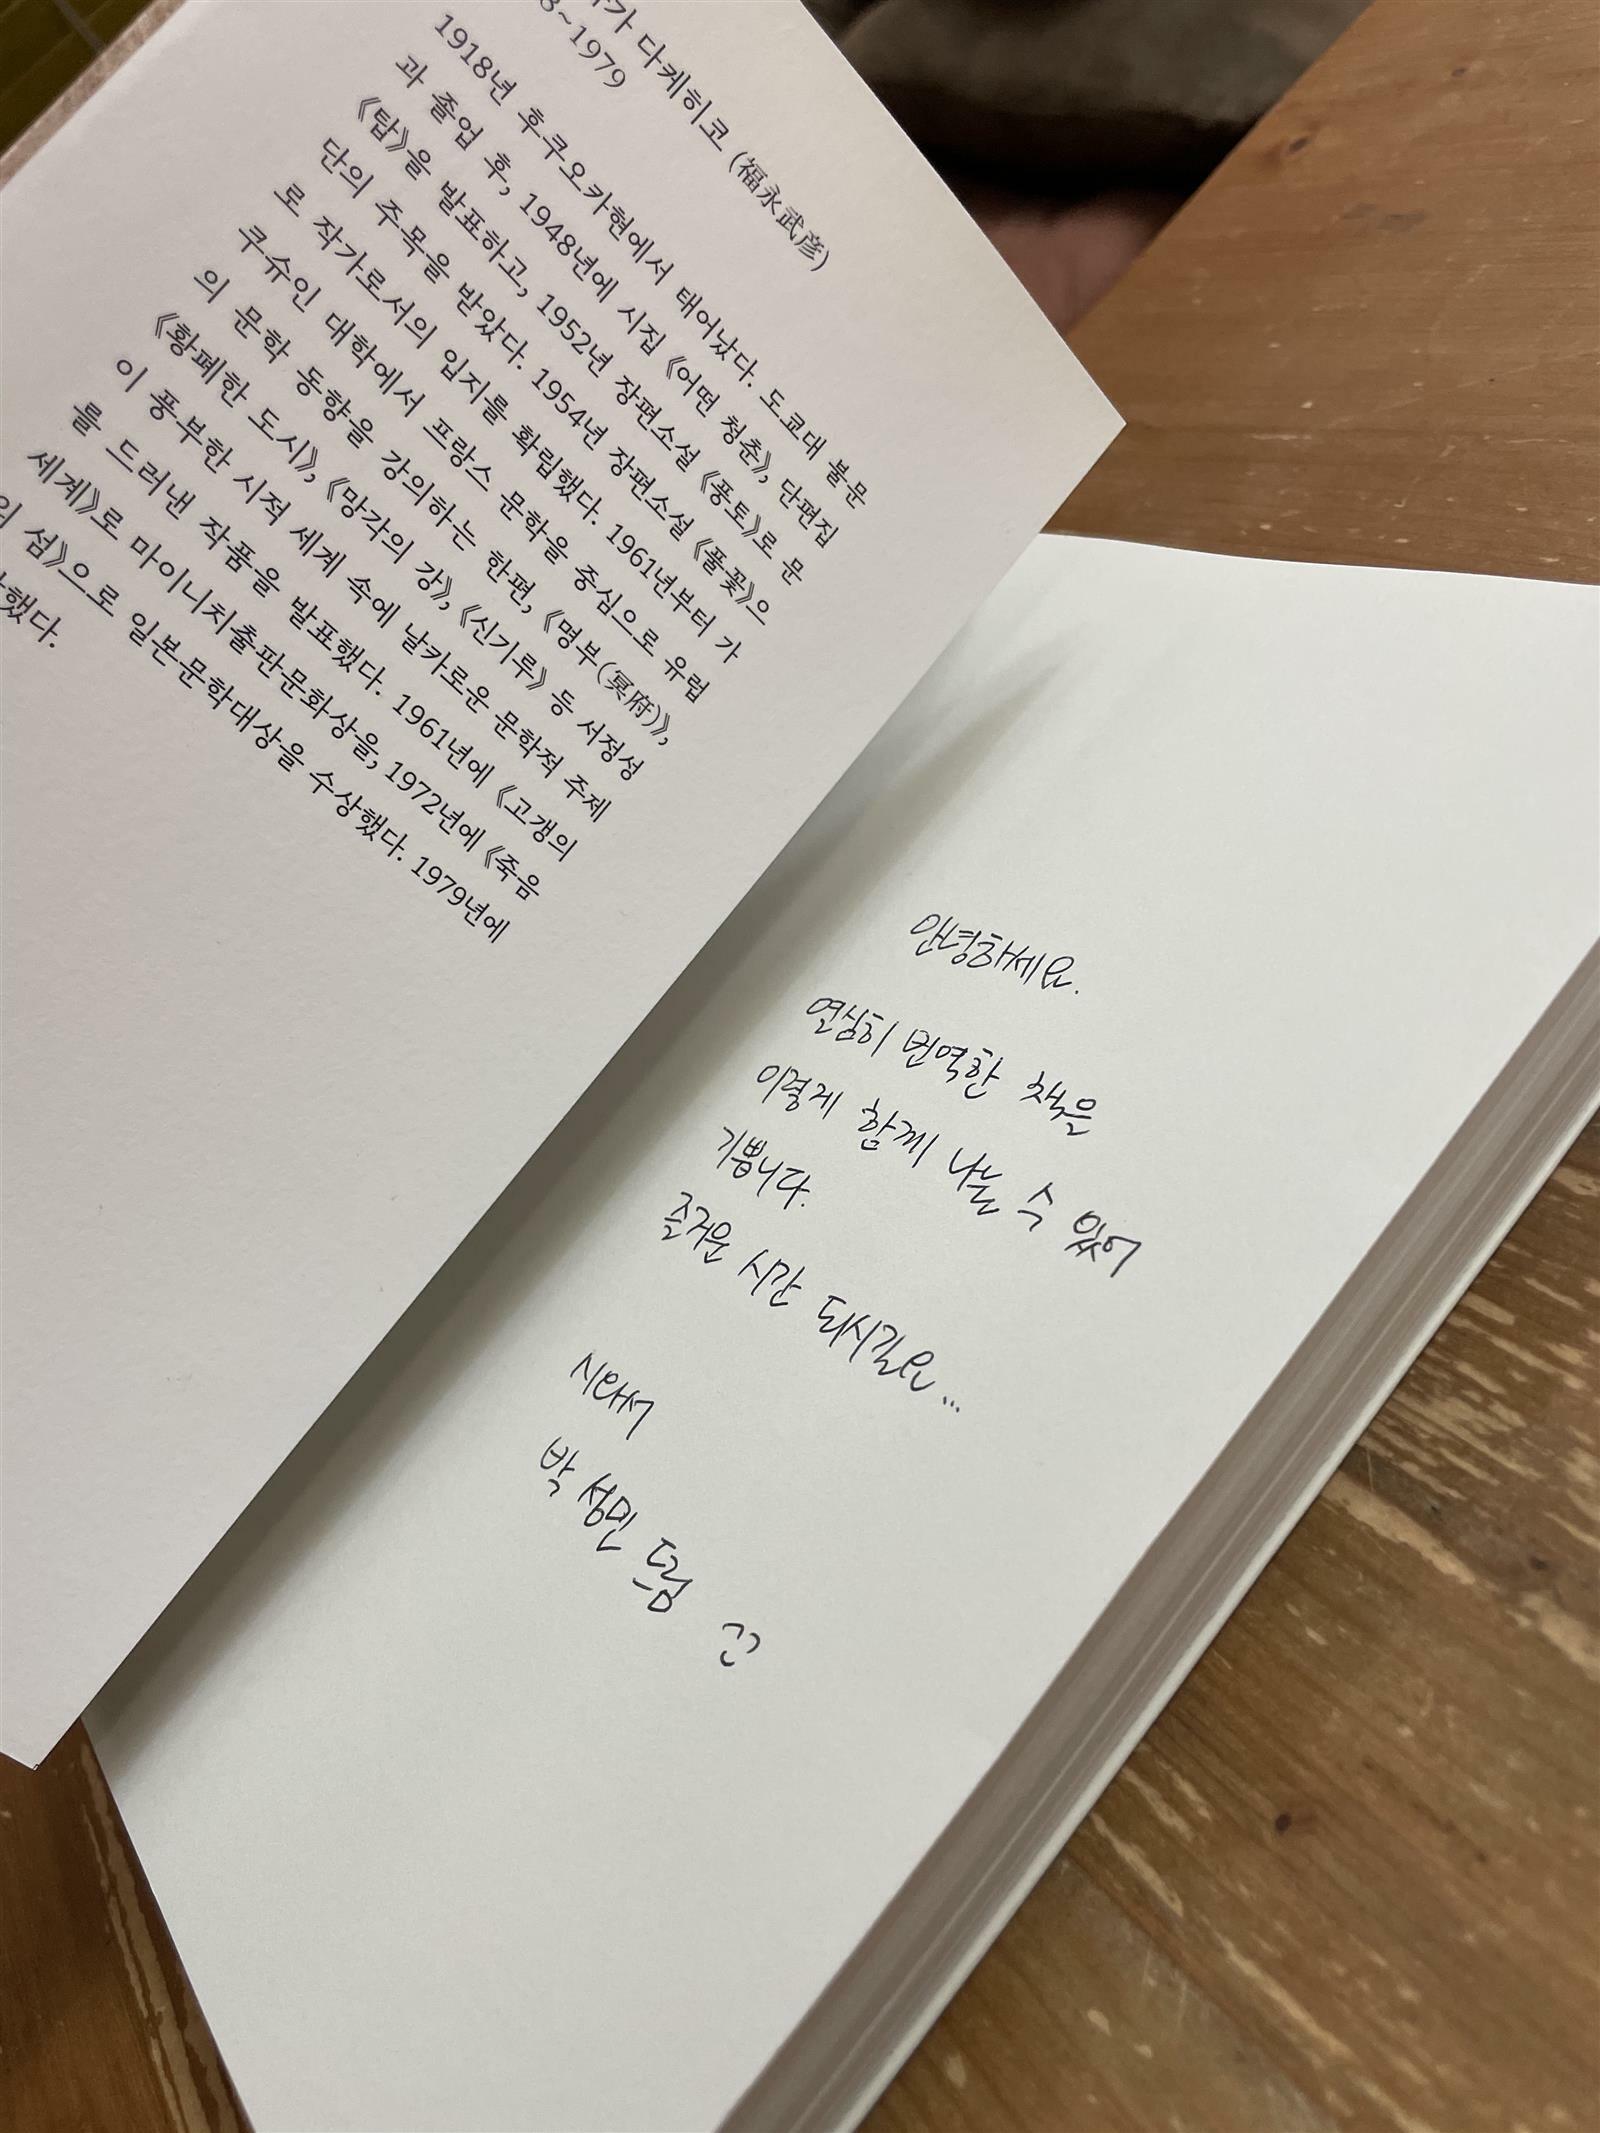 다케히코 (福永武彦)
~1979
1918년 후쿠오카현에서 태어났다. 도쿄대 불문
과 졸업 후, 1948년에 시집 《어떤 청춘》, 단편집
《탑》을 발표하고, 1952년 장편소설 《풍토》로 문
단의 주목을 받았다. 1954년 장편소설 《풀꽃》으
로 작가로서의 입지를 확립했다. 1961년부터 가
쿠슈인 대학에서 프랑스 문학을 중심으로 유럽
의 문학 동향을 강의하는 한편, 《명부(冥府)》,
《황폐한 도시》, 《망각의 강》, 《신기루》 등 서정성
이 풍부한 시적 세계 속에 날카로운 문학적 주제
를 드러낸 작품을 발표했다. 1961년에 《고갱의
세계》로 마이니치출판문화상을, 1972년에 《죽음
의 섬》으로 일본문학대상을 수상했다. 1979년에
했다.
안녕하세요.
열심히 번역한 책을
이렇게 함께 나눌 수 있어
기쁩니다.
즐거운 시간 되시길요...
박성민 드림